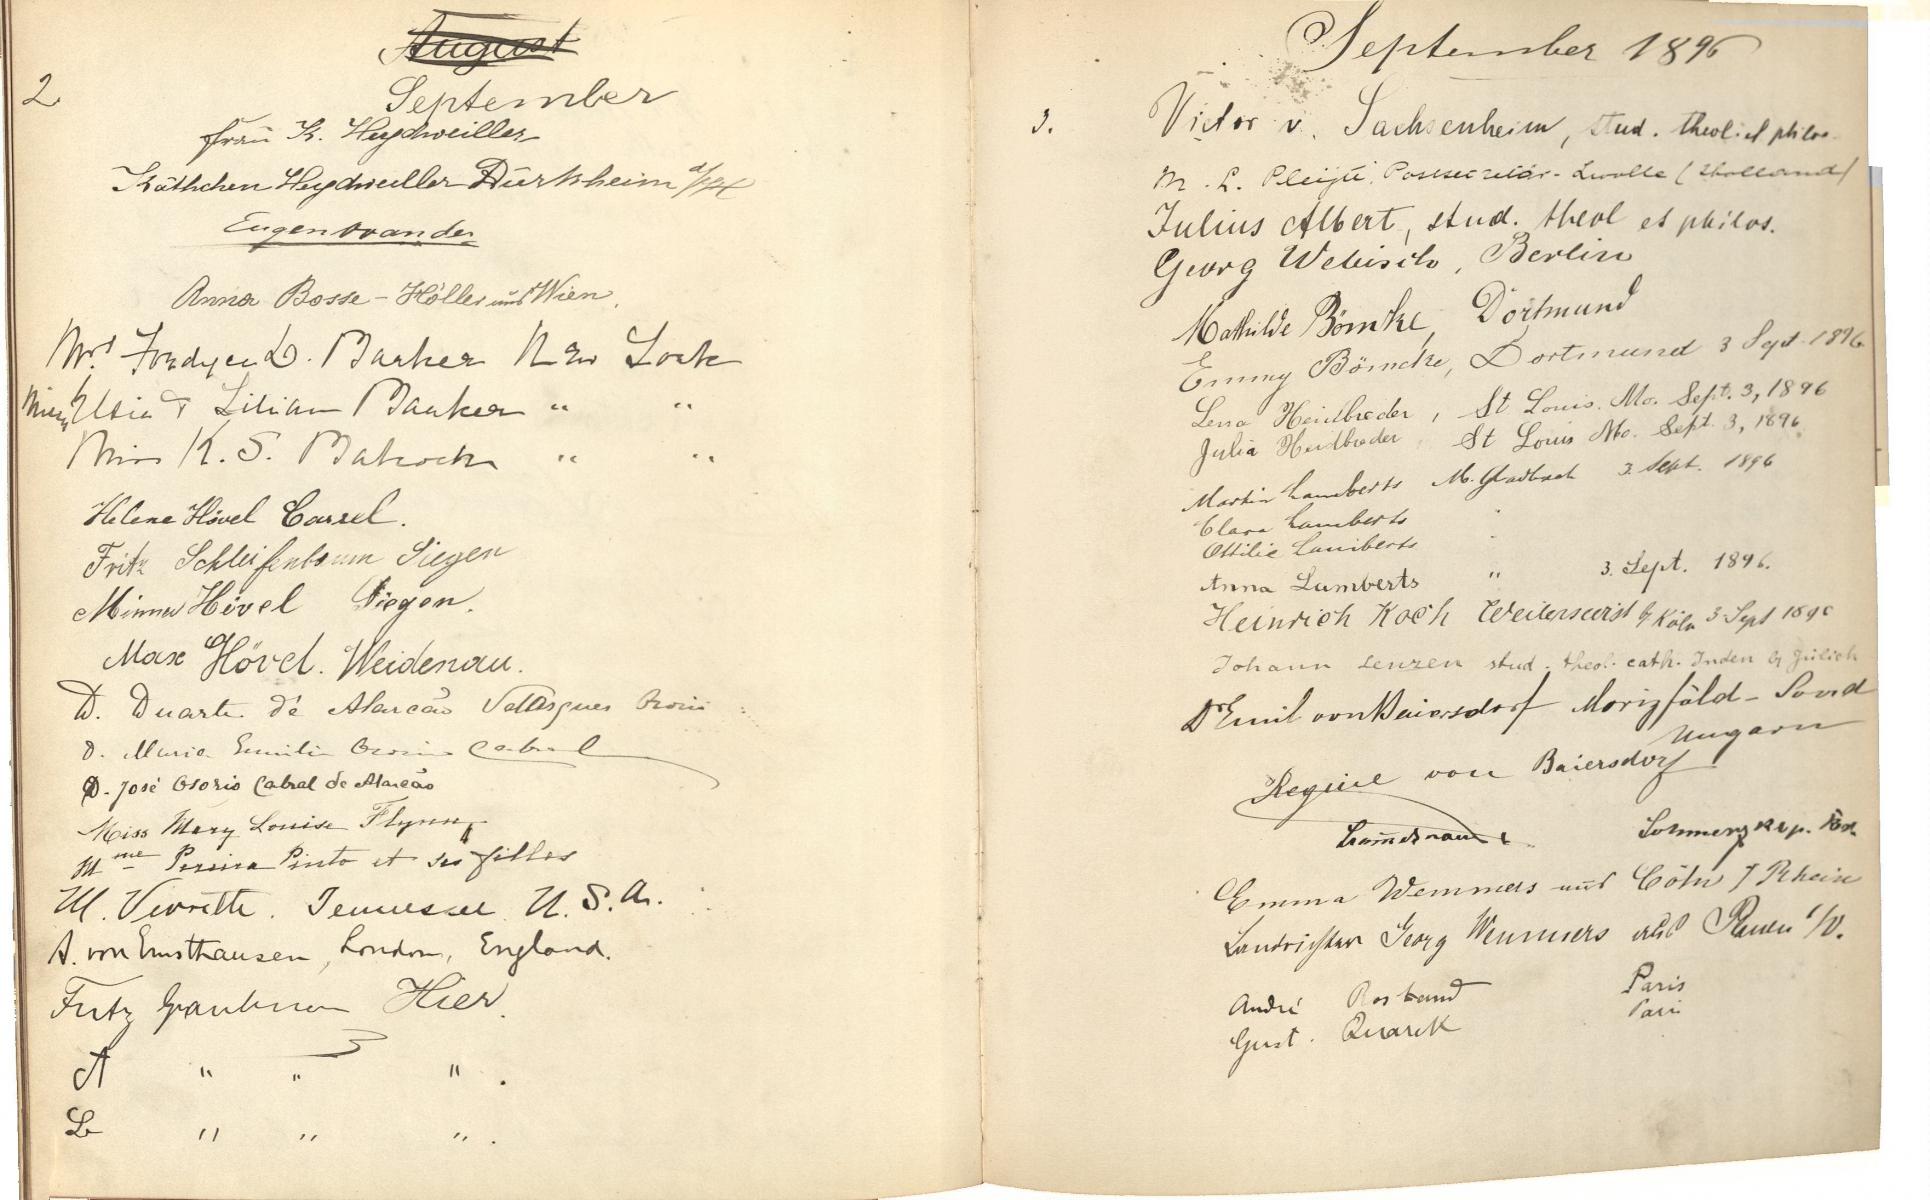 August
2
September
Frau K. Heydweiller
Käthchen Heydweiller Dürkheim
Anna Bosse - Höller und Wien.
Mrs Fordyce D. Barker New York
Lilian Barker " "
Miss K. S. Babcock " "
Helene Hövel Cassel.
Fritz Schleifenbaum Siegen
Minna Hövel Siegen.
Max Hövel. Weidenau.
D. Duarte de Alarcão Osorio
D. Maria Emilia Osorio Cabral
D. José Osorio Cabral de Alarcão
Miss Mary Louise Flynn
Mme Pereira Pinto et ses filles
M. Verrette. Tennessee U.S.A.
A. von Ernsthausen, London, England.
Fritz Hier.
A " " " .
L " " " .
September 1896
3.
Victor v. Sachsenheim, stud. theol. et philos.
M. L. Postsecretär - Zwolle (Holland)
Julius Albert, stud. theol et philos.
Georg Berlin
Mathilde Bömcke, Dortmund
Emmy Bömcke, Dortmund 3 Sept. 1896
Lena Heidbreder, St Louis. Mo. Sept. 3, 1896
Julia Heidbreder, St Louis Mo. Sept. 3, 1896
Martin Lamberts M. Gladbach 3. Sept. 1896
Clara Lamberts "
Ottilie Lamberts "
Anna Lamberts " 3. Sept. 1896.
Heinrich Koch Weilerswist b/ Köln 3 Sept 1896
Johann Lenzen stud. theol. cath. Inden b/ Jülich
Dr Emil von Baiersdorf
Ungarn
von Baiersdorf
Emma Wemmers aus Cöln / Rhein
Landrichter Georg Wemmers aus Plauen i/V.
André Paris
Gust. Quarck Paris